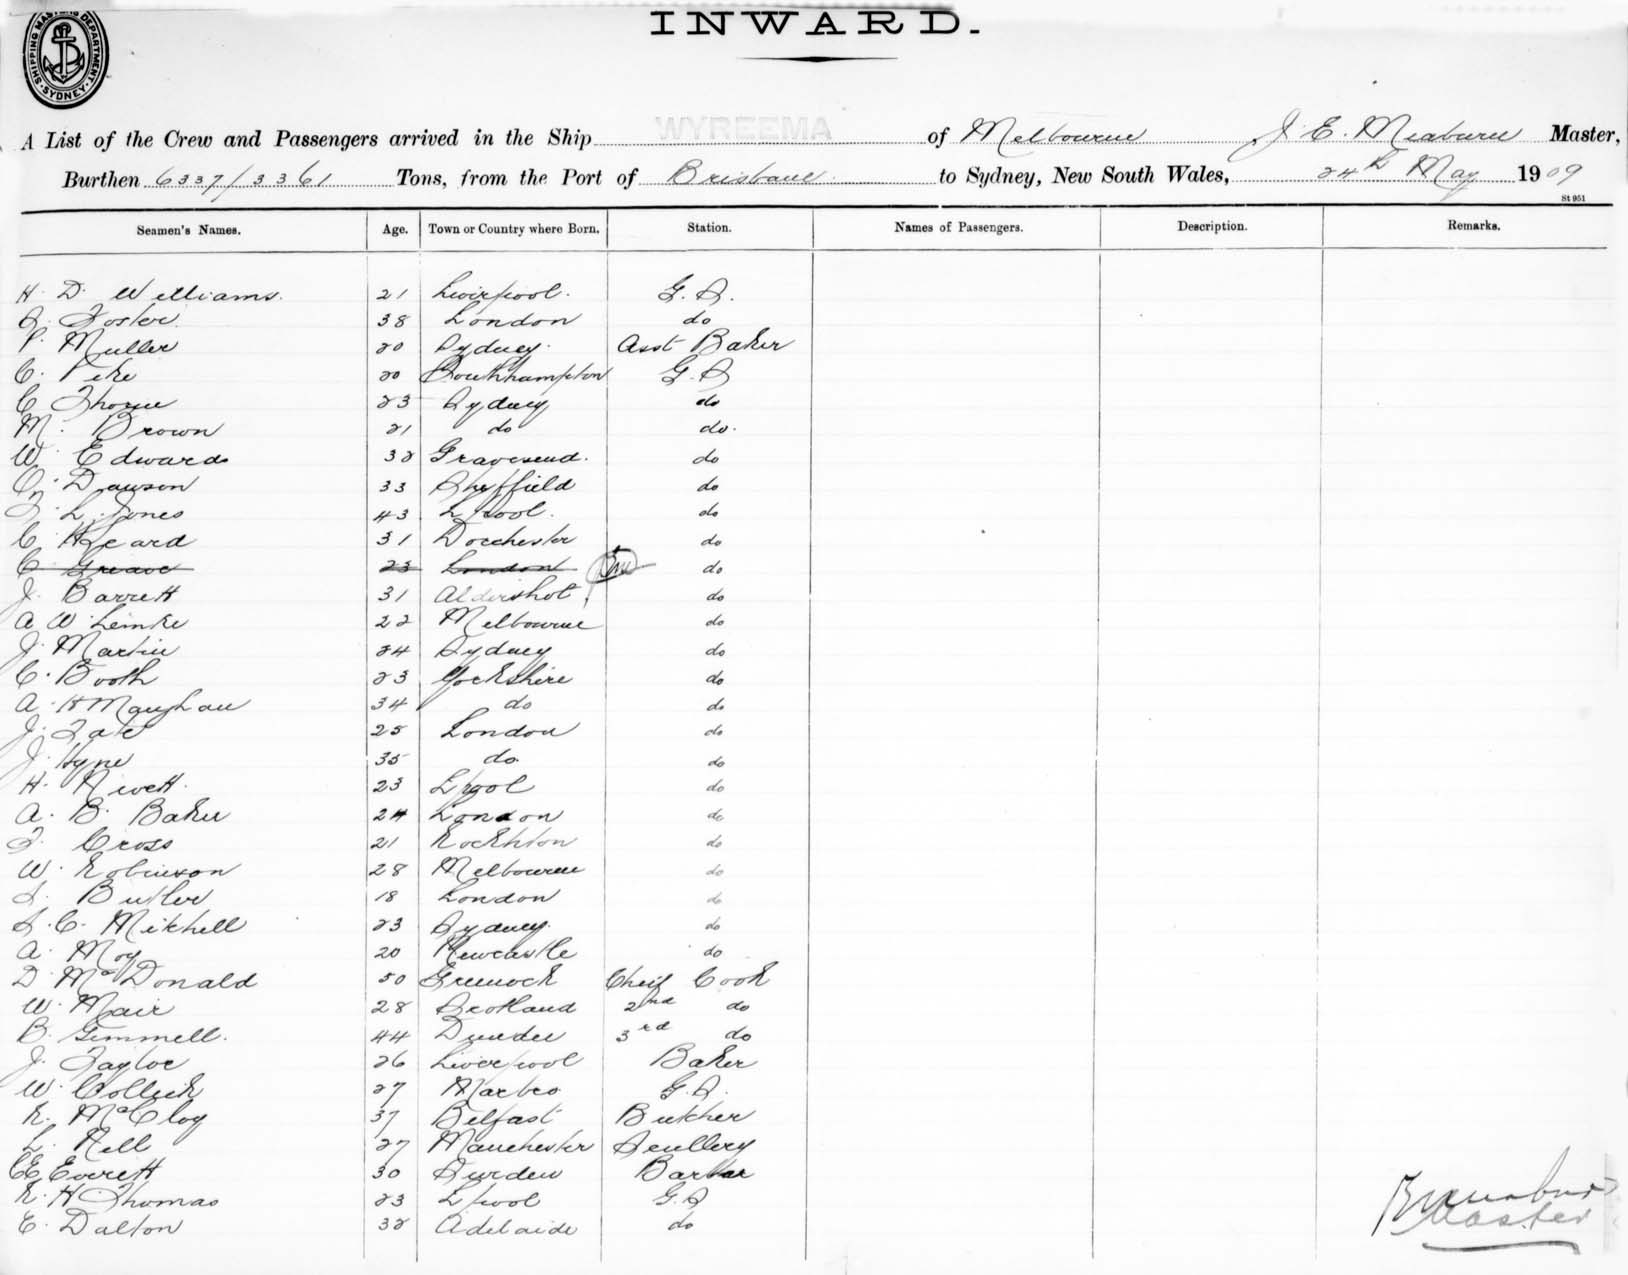 INWARD.
SHIPPING MASTERS DEPARTMENT SYDNEY
A List of the Crew and Passengers arrived in the Ship WYREEMA of Melbourne J. E. Meaburn Master,
Burthen 6337/3361 Tons, from the Port of Brisbane to Sydney, New South Wales, 24th May 1909
St 951
Seamen's Names. Age. Town or Country where Born. Station. Names of Passengers. Description. Remarks.
H. D. Williams. 21 Liverpool. G. S.
Foster 38 London do
P. Muller 20 Sydney. Asst Baker
C. Pike 20 Southhampton G. S
C Thorne 23 Sydney do
M. Brown 21 do do.
W. Edwards 32 Gravesend. do
Dawson 33 Sheffield do
L. Jones 43 L'pool. do
C Heard 31 Dorchester do
C Greave 23 London do
J. Barrett 31 Aldershot do
A W Lemke 22 Melbourne do
J. Martin 24 Sydney do
C. Booth 23 Yorkshire do
A. H Maughan 34 do do
J. Tate 25 London do
J. Hyne 35 do do
H. Rivett. 23 L'pool do
A. B. Baker 24 London do
F. Cross 21 do
W. Robinson 28 Melbourne do
Butler 18 London do
S. C. Mitchell 23 Sydney. do
A. Moy 20 Newcastle do
D McDonald 50 Greenock Cheif Cook
W. Mair 28 Scotland 2nd do
B. Gemmell. 44 Dundee 3rd do
J. Taylor 26 Liverpool Baker
W. Collick 27 G. S.
R. McCloy 37 Belfast Butcher
L. Nell 27 Manchester Scullery
CE Everett 30 Sweden Barber
R. H Thomas 23 L'pool G. S
E. Dalton 32 Adelaide do
Master